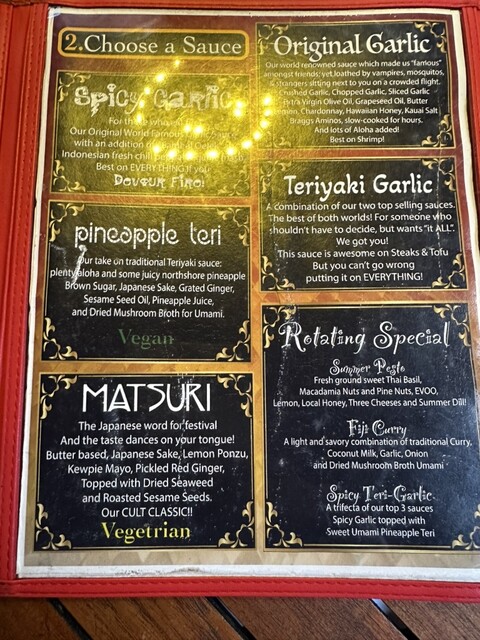 2.Choose a Sauce
Spicy Garlic
For th
Our Original World Famous
with an addition of
Indonesian fresh chili
Best on EVERYTHING if you
Devour Fire!
pineapple teri
Our take on traditional Teriyaki sauce:
plenty aloha and some juicy northshore pineapple
Brown Sugar, Japanese Sake, Grated Ginger,
Sesame Seed Oil, Pineapple Juice,
and Dried Mushroom Broth for Umami.
Vegan
MATSURI
The Japanese word for festival
And the taste dances on your tongue!
Butter based, Japanese Sake, Lemon Ponzu,
Kewpie Mayo, Pickled Red Ginger,
Topped with Dried Seaweed
and Roasted Sesame Seeds.
Our CULT CLASSIC!!
Vegetrian
Original Garlic
Our world renowned sauce which made us "famous"
amongst friends; yet loathed by vampires, mosquitos,
& strangers sitting next to you on a crowded flight.
Crushed Garlic, Chopped Garlic, Sliced Garlic
Extra Virgin Olive Oil, Grapeseed Oil, Butter
Lemon, Chardonnay, Hawaiian Honey, Kauai Salt
Braggs Aminos, slow-cooked for hours.
And lots of Aloha added!
Best on Shrimp!
Teriyaki Garlic
A combination of our two top selling sauces.
The best of both worlds! For someone who
shouldn't have to decide, but wants "it ALL".
We got you!
This sauce is awesome on Steaks & Tofu
But you can't go wrong
putting it on EVERYTHING!
Rotating Special
Summer Pesto
Fresh ground sweet Thai Basil,
Macadamia Nuts and Pine Nuts, EVOO,
Lemon, Local Honey, Three Cheeses and Summer Dill!
Fiji Curry
A light and savory combination of traditional Curry,
Coconut Milk, Garlic, Onion
and Dried Mushroom Broth Umami
Spicy Teri-Garlic
A trifecta of our top 3 sauces
Spicy Garlic topped with
Sweet Umami Pineapple Teri